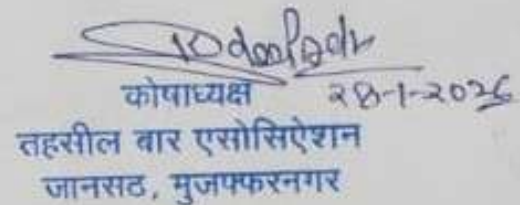 कोषाध्यक्ष २8-1-2026
तहसील बार एसोसिऐशन
जानसठ, मुजफ्फरनगर